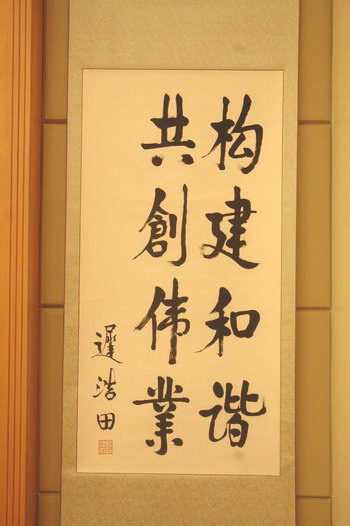 构建和谐
共創伟業
遲浩田